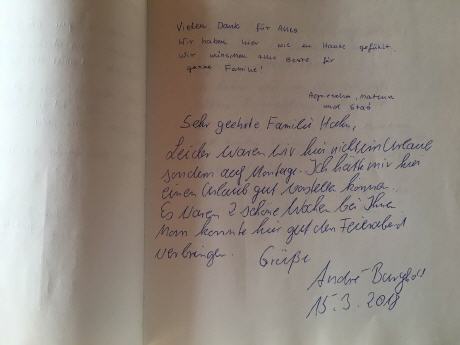 Vielen Dank für Alles
Wir haben hier wie zu Hause gefühlt.
Wir wünschen alles Beste für
ganze Familie!
Agnieszka, Mateusz
und Staś
Sehr geehrte Familie Hahn,
Leider waren wir hier nicht im Urlaub
sondern auf Montage. Ich hätte mir hier
einen Urlaub gut vorstellen können.
Es waren 2 schöne Wochen bei Ihnen
Man konnte hier gut den Feierabend
verbringen. Grüße
André
15.3.2018